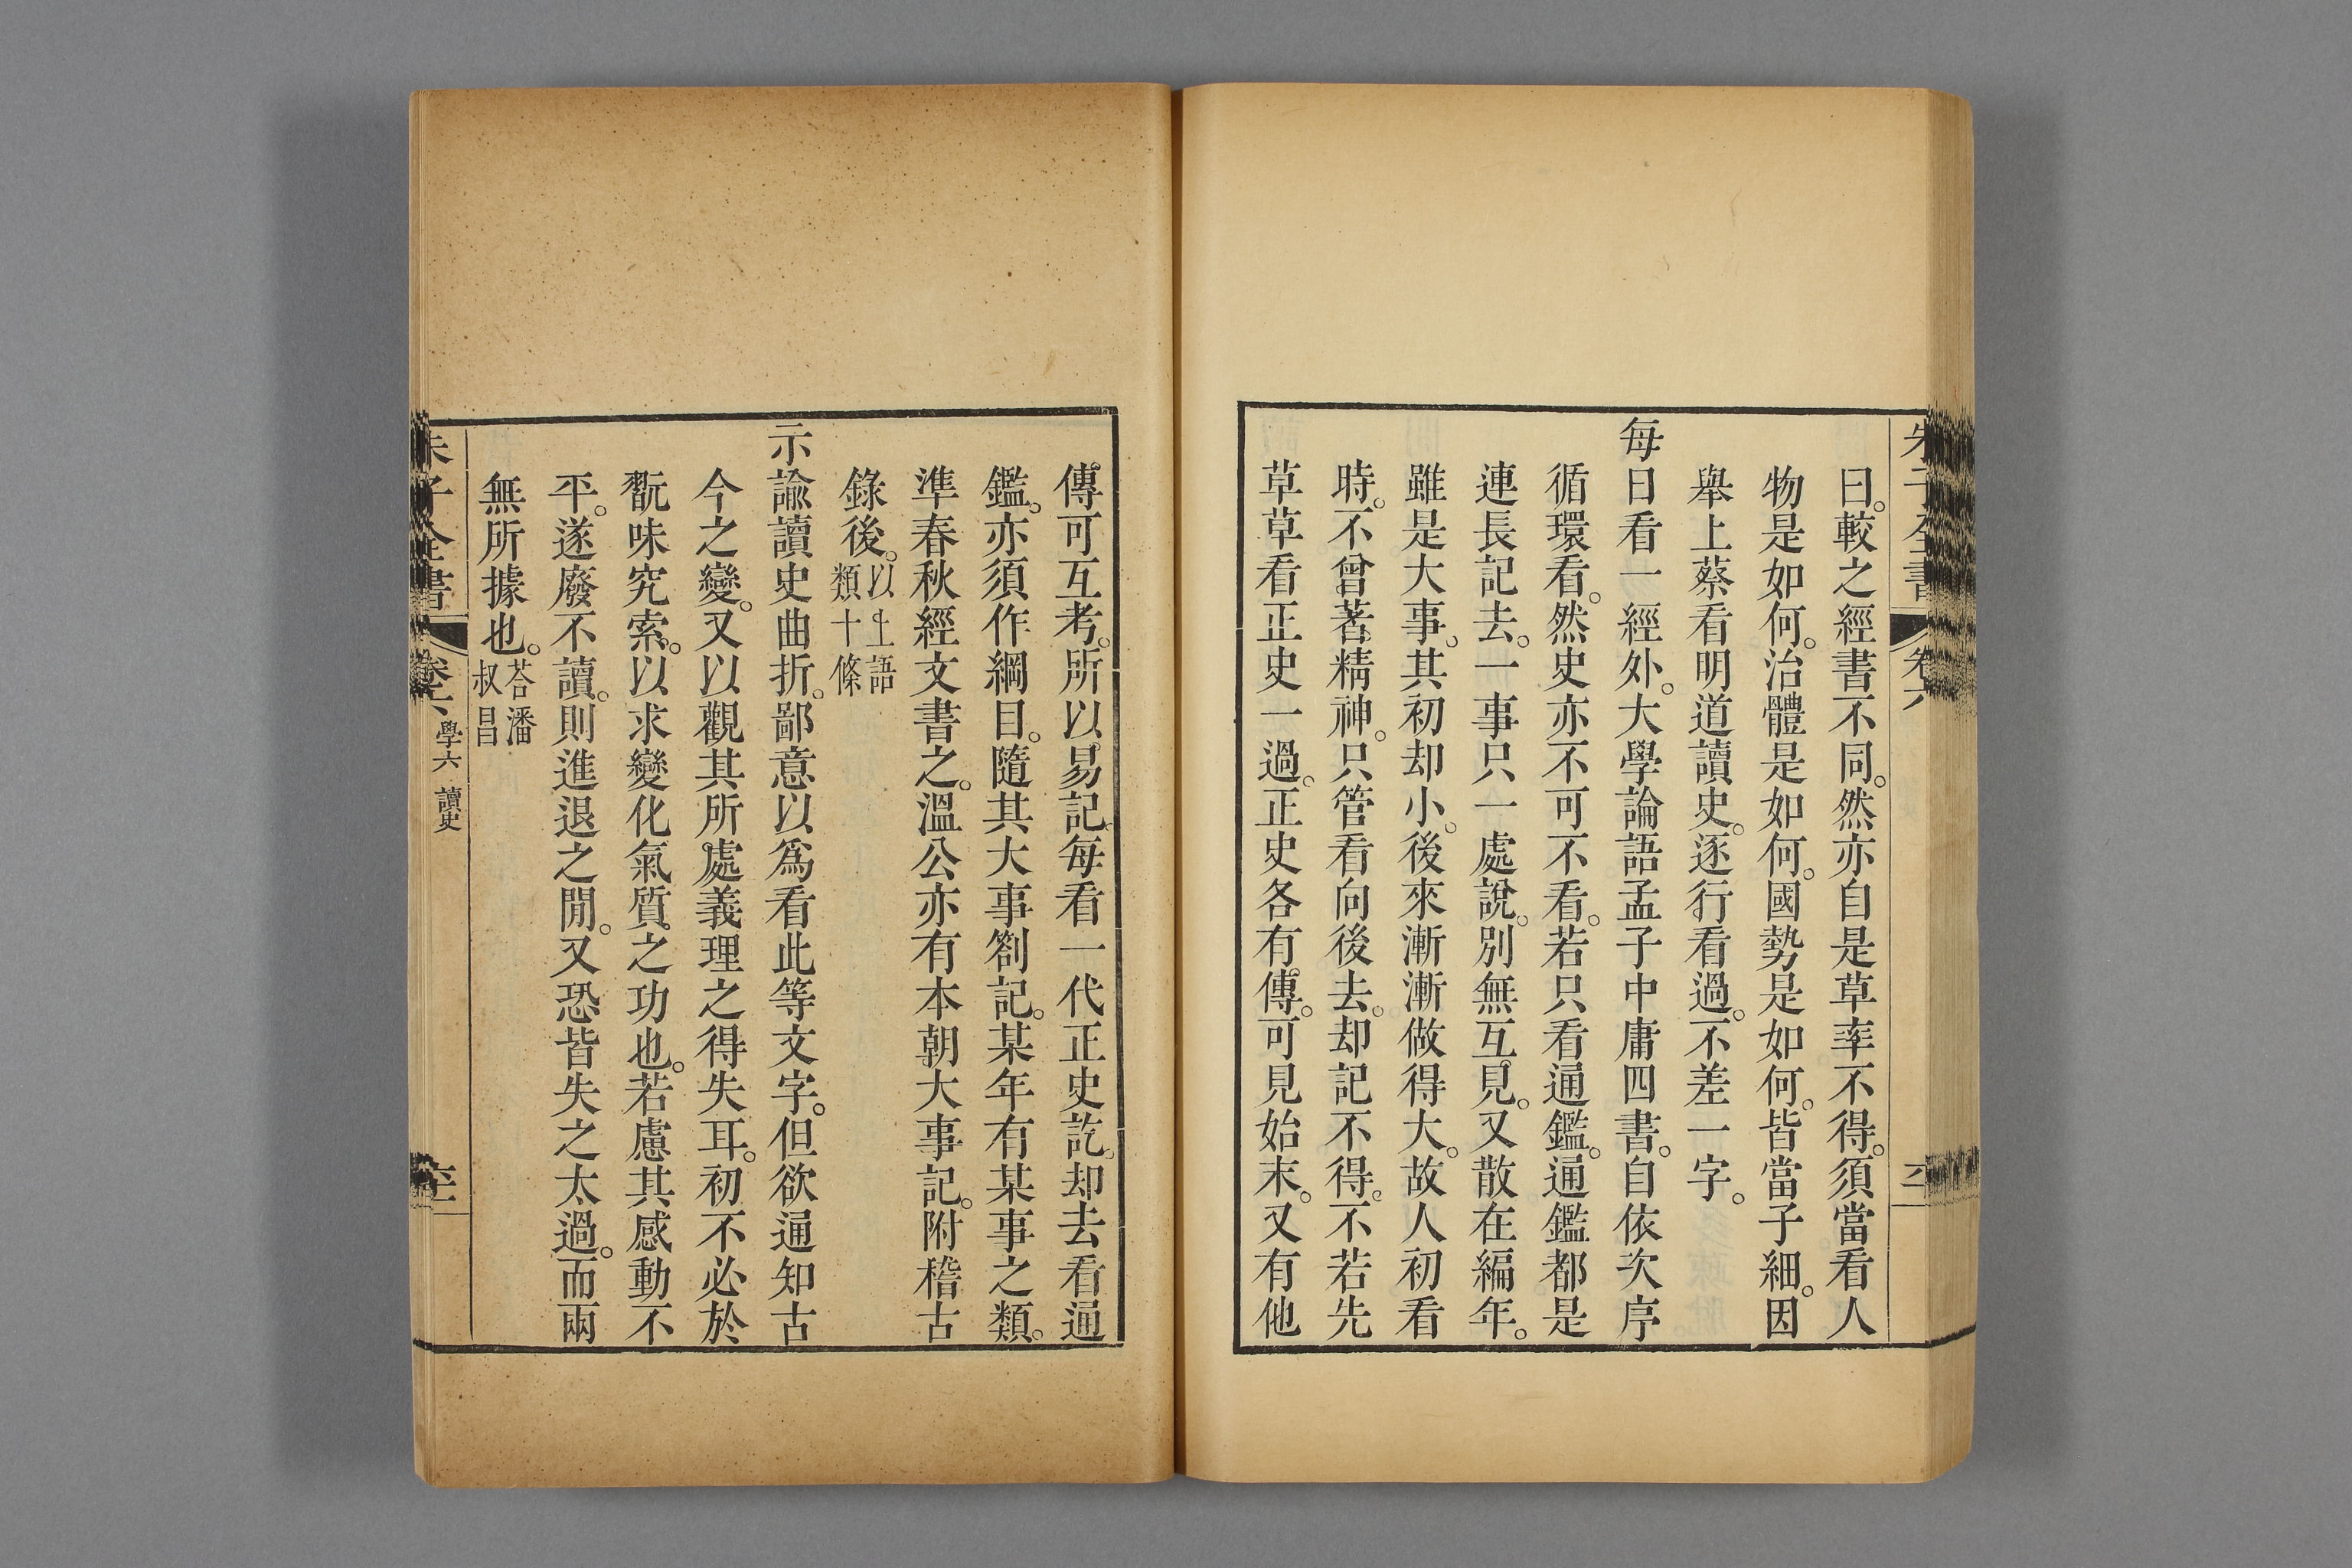 曰。較之經書不同。然亦自是草率不得。須當看人
物是如何。治體是如何。國勢是如何。皆當子細。因
舉上蔡看明道讀史。逐行看過。不差一字。
每日看一經外。大學論語孟子中庸四書。自依次序
循環看。然史亦不可不看。若只看通鑑。通鑑都是
連長記去。一事只一處說。別無互見。又散在編年。
雖是大事。其初却小。後來漸漸做得大。故人初看
時。不曾著精神。只管看向後去。却記不得。不若先
草草看正史一過。正史各有傳。可見始末。又有他
傳可互考。所以易記。每看一代正史訖。却去看通
鑑。亦須作綱目。隨其大事劄記。某年有某事之類。
準春秋經文書之。溫公亦有本朝大事記。附稽古
錄後。以上語類十條
示諭讀史曲折。鄙意以爲看此等文字。但欲通知古
今之變。又以觀其所處義理之得失耳。初不必於
翫味究索。以求變化氣質之功也。若慮其感動不
平。遂廢不讀。則進退之閒。又恐皆失之太過。而兩
無所據也。荅潘叔昌
朱子全書
卷六
學六 讀史